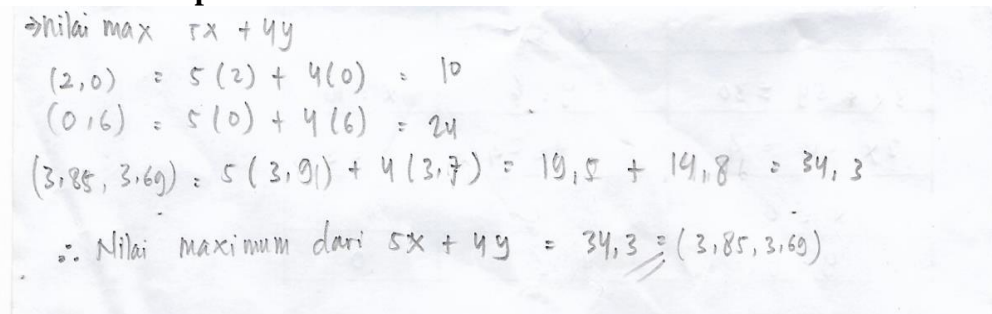 ⇒ nilai max 5x + 4y
(2,0) = 5(2) + 4(0) = 10
(0,6) = 5(0) + 4(6) = 24
(3,85, 3,69) = 5(3,91) + 4(3,7) = 19,5 + 14,8 = 34,3
∴ Nilai maximum dari 5x + 4y = 34,3 = (3,85, 3,69)